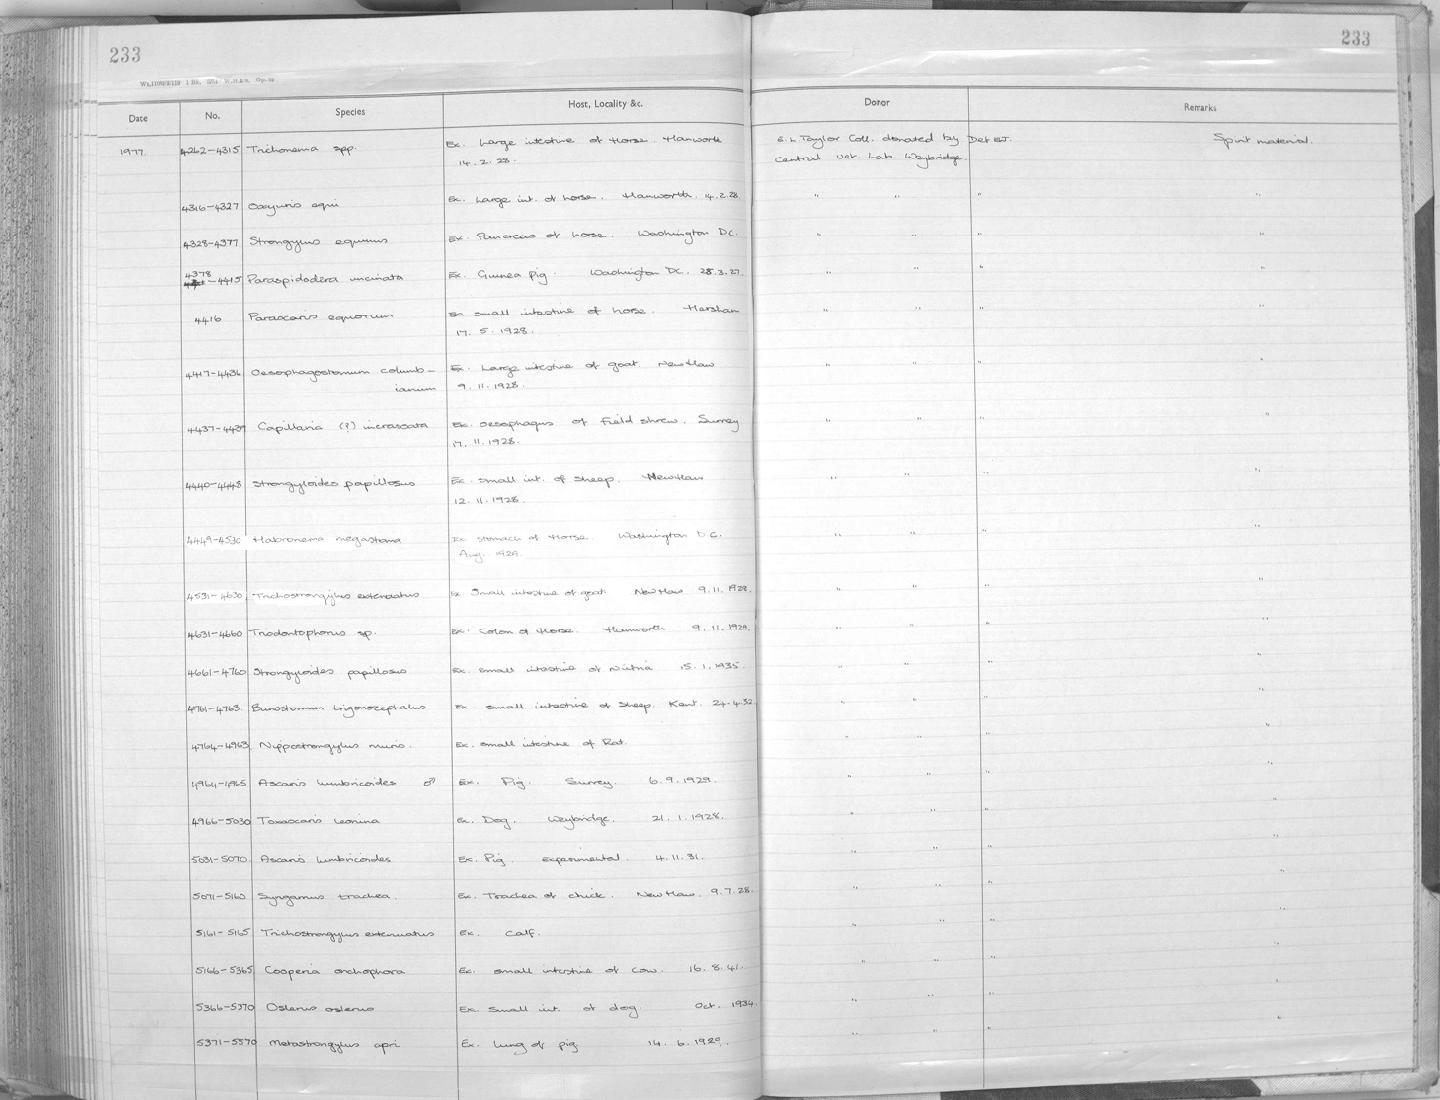 233
233
Date No. Species Host, Locality &c. Donor Remarks
1977. 4262-4315 Trichonema spp. Ex. Large intestine of Horse. Hanworth E. L. Taylor Coll. donated by Det EJ. Spirit material.
14. 2. 28. Central Vet. Lab. Weybridge.
4316-4327 Oxyuris equi Ex. Large int. of horse. Hanworth. 14.2.28. " " " "
4328-4377 Strongylus equinus Ex. Pancreas of horse. Washington D.C. " " " "
4378
-4415 Paraspidodera uncinata Ex. Guinea pig. Washington D.C. 28.3.27. " " " "
4416 Parascaris equorum Ex small intestine of horse. Hersham " " " "
17. 5. 1928.
4417-4436 Oesophagostomum columb- Ex. Large intestine of goat. New Haw " " " "
ianum 9. 11. 1928.
4437-4439 Capillaria (?) incrassata Ex. oesophagus of field shrew. Surrey " " " "
17. 11. 1928.
4440-4448 Strongyloides papillosus Ex. small int. of sheep. New Haw " " " "
12. 11. 1928.
4449-4530 Habronema megastoma Ex stomach of Horse. Washington D.C. " " " "
Aug.
4531-4630 Trichostrongylus extenuatus Ex Small intestine of goat New Haw 9. 11. 1928. " " " "
4631-4660 Triodontophorus sp. Ex. Colon of Horse. 9. 11. " " " "
4661-4760 Strongyloides papillosus Ex. small intestine of Nutria 15. 1. 1935. " " " "
4761-4763 Bunostomum trigonocephalus Ex small intestine of Sheep. Kent. 24. 4. 32. " " " "
4764-4963 Nippostrongylus muris. Ex. small intestine of Rat. " " " "
Ascaris lumbricoides ♂ Ex. Pig. Surrey. 6. 9. 1929. " " " "
4966-5030 Toxascaris leonina Ex. Dog. Weybridge. 21. 1. 1928. " " " "
5031-5070. Ascaris lumbricoides Ex. Pig. experimental. 4. 11. 31. " " " "
5071-5160 Syngamus trachea. Ex. Trachea of chick. New Haw. 9. 7. 28. " " " "
5161-5165 Trichostrongylus extenuatus Ex. Calf. " " " "
5166-5365 Cooperia onchophora Ex. small intestine of cow. 16. 8. 41. " " " "
5366-5370 Oslerus oslerus Ex. Small int. of dog. Oct. 1934. " " " "
5371-5570 Metastrongylus apri Ex. Lung of pig. 14. 6. " " " "